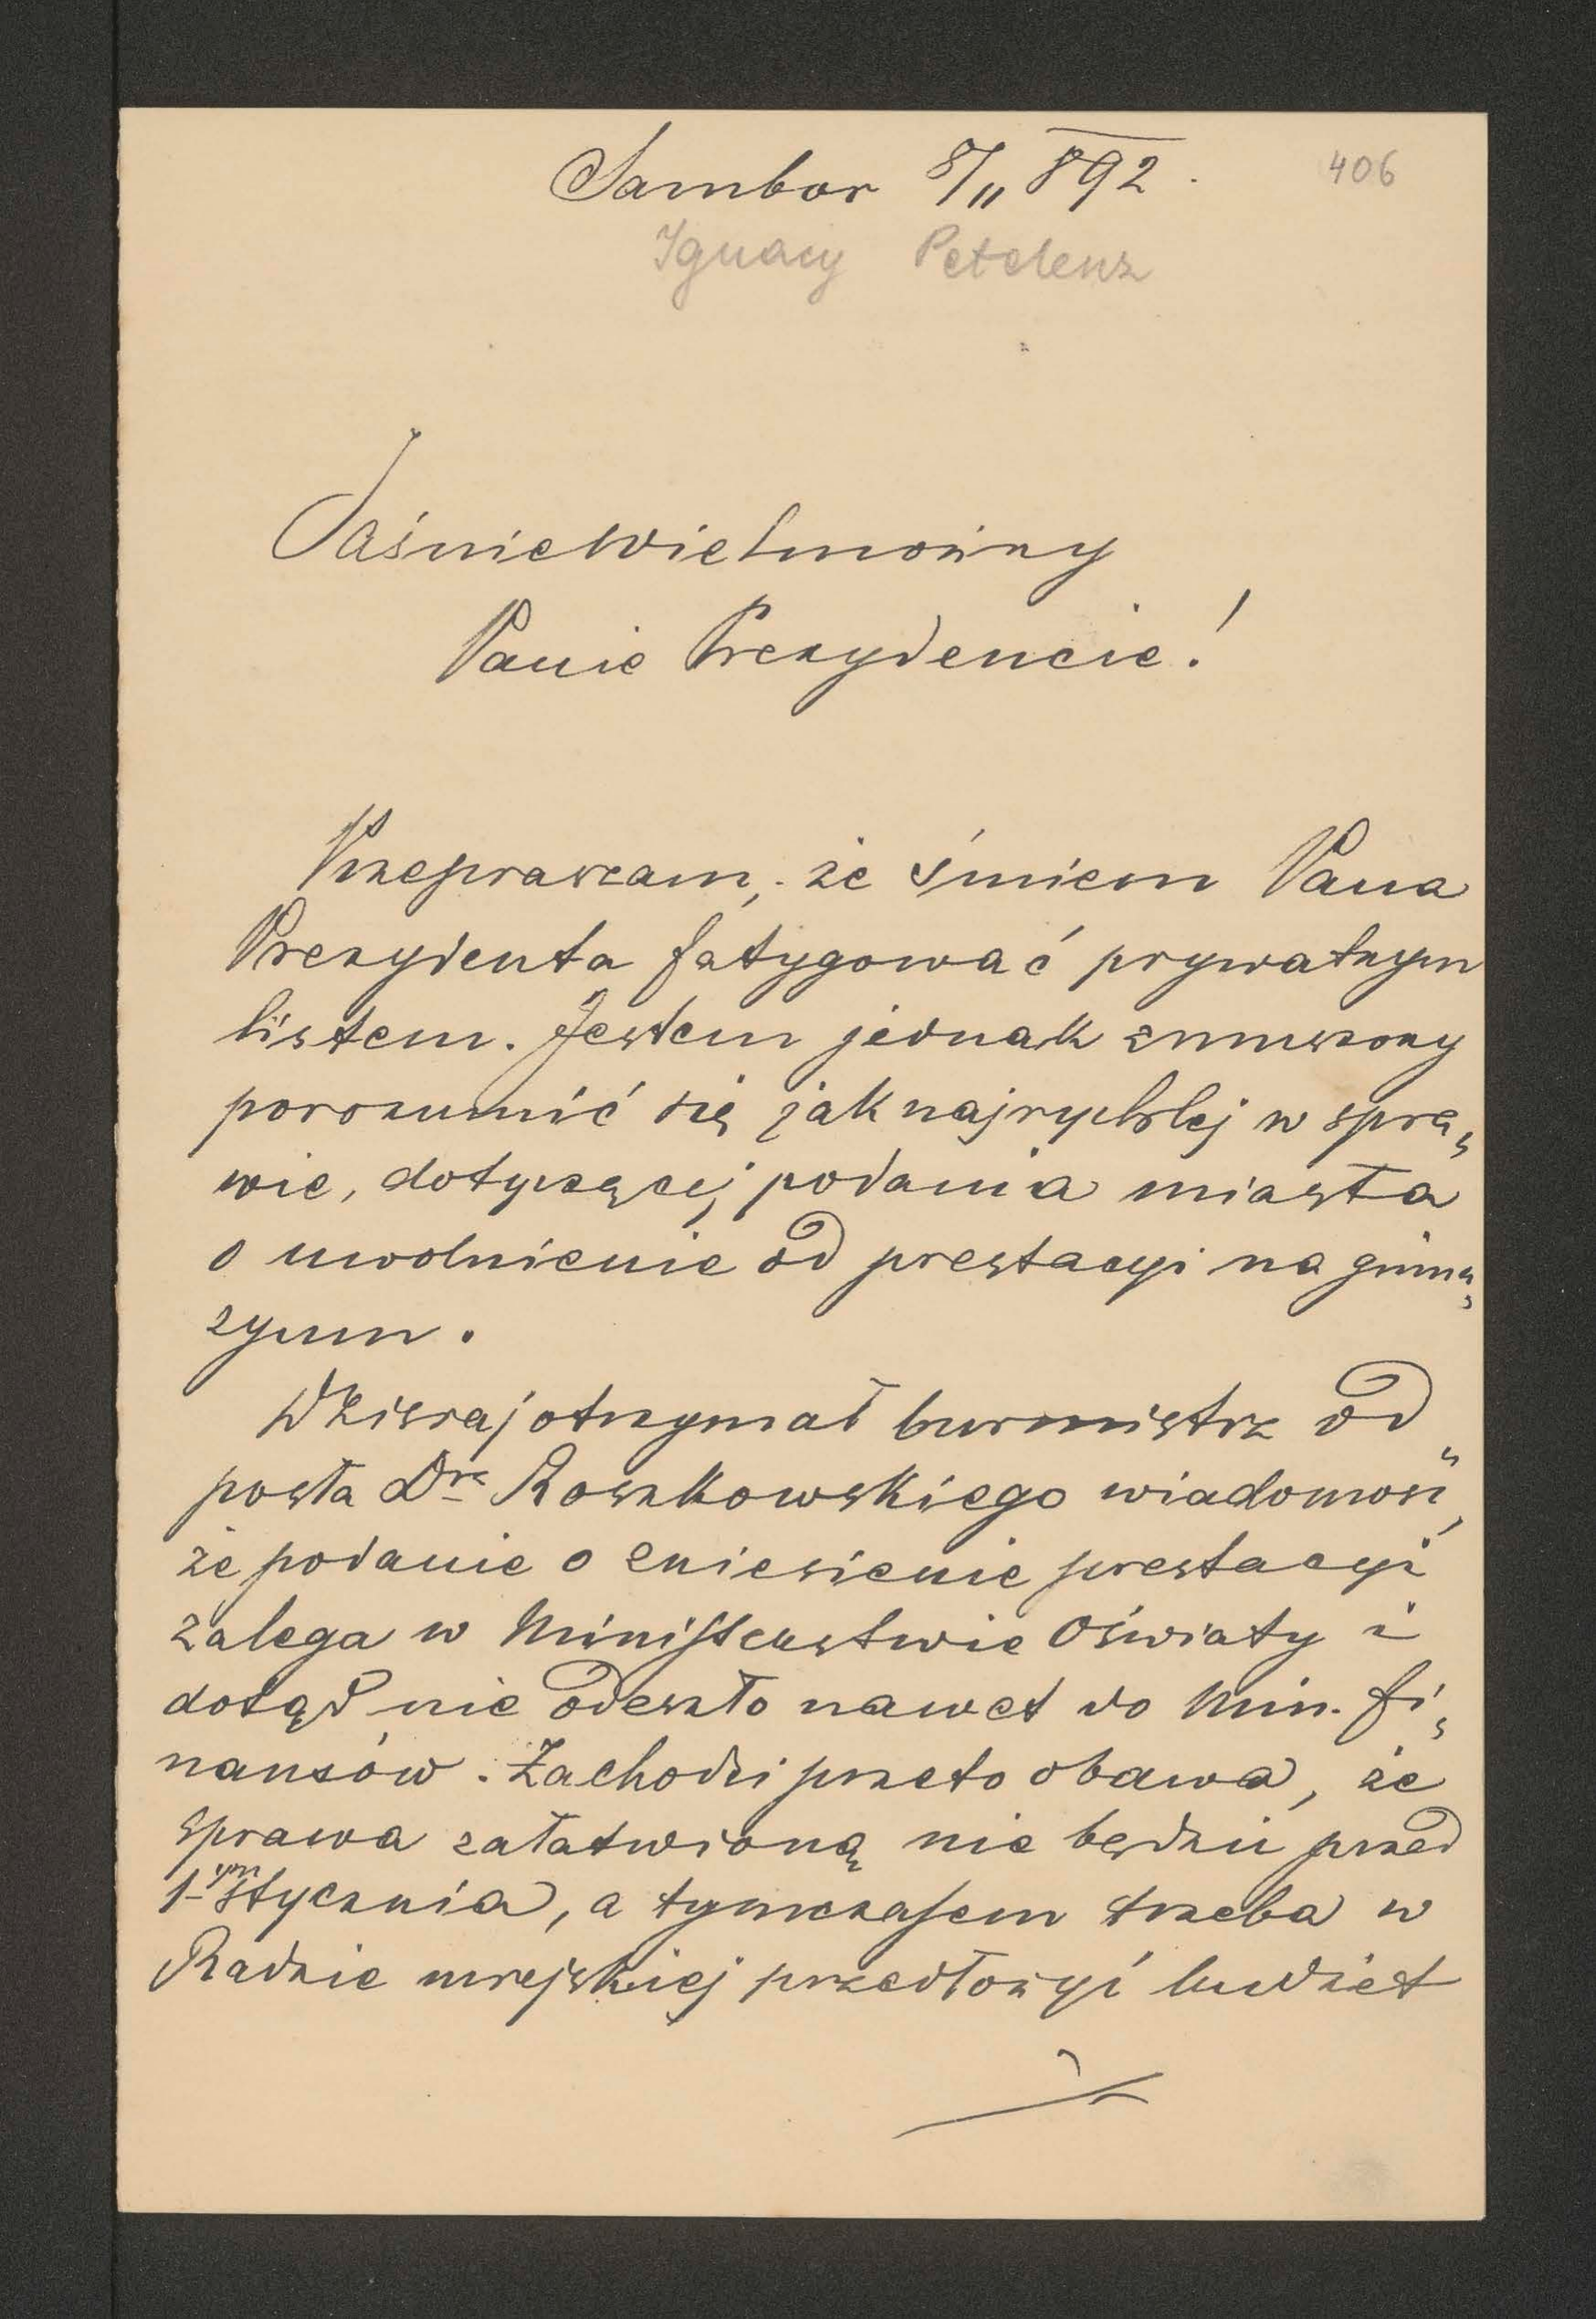 Sambor 8/11 892.
406
Ignacy Petelenz
JaśnieWielmożny
Panie Prezydencie!
Przepraszam, że śmiem Pana
Prezydenta fatygować prywatnym
listem. Jestem jednak zmuszony
porozumić się jaknajrychlej w spra-
wie, dotyczącej podania miasta
o uwolnienie od prestacyi na gimna-
zyum.
Dzisiaj otrzymał burmistrz od
posła Dra Roszkowskiego wiadomość,
że podanie o zniesienie prestacyi
zalega w Ministerstwie Oświaty i
dotąd nie odeszło nawet do Min. fi-
nansów. Zachodzi przeto obawa, że
sprawa załatwioną nie będzie przed
1ym stycznia, a tymczasem trzeba w
Radzie miejskiej przedłożyć budżet